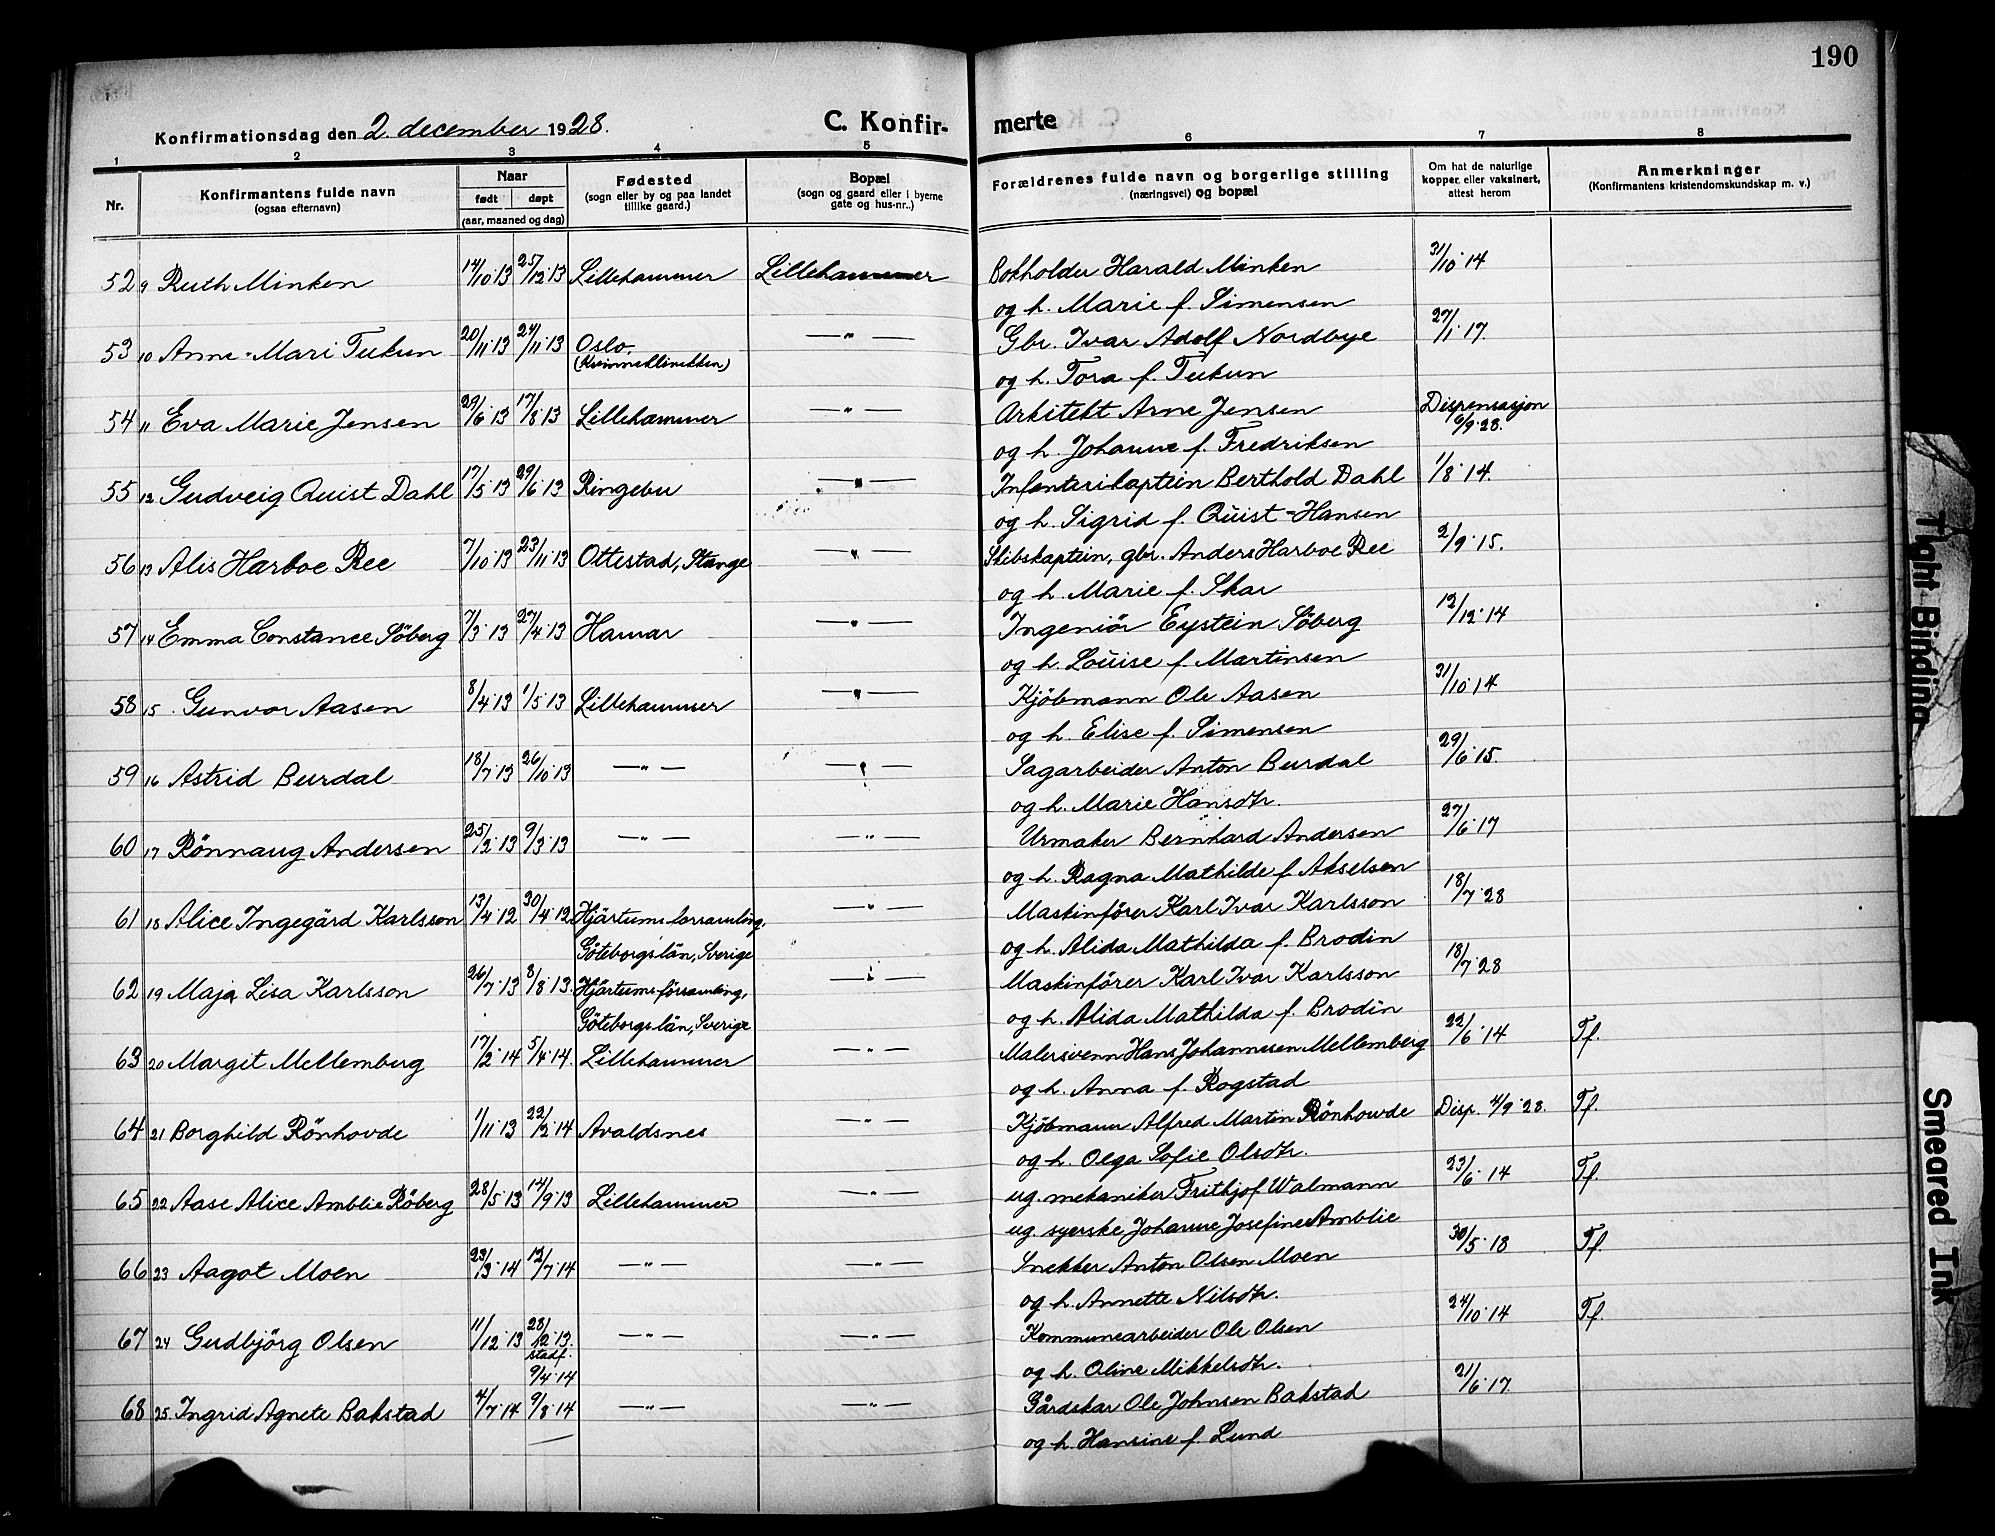 190
Konfirmationsdag den 2. december 1928.
C. Konfirmerte
1 2 3 4 5 6 7 8
Nr.
Konfirmantens fulde navn
(ogsaa efternavn)
Naar
født døpt
(aar, maaned og dag)
Fødested
(sogn eller by og paa landet
tillike gaard.)
Bopæl
(sogn og gaard eller i byerne
gate og hus-nr..)
Forældrenes fulde navn og borgerlige stilling
(næringsvei) og bopæl
Om hat de naturlige
kopper eller vaksinert,
attest herom
Anmerkninger
(Konfirmantens kristendomskundskap m. v.)
52 9 Ruth Minken 14/10·13 25/12·13 Lillehammer Lillehammer Bokholder Harald Minken 31/10·14
og h. Marie f. Simensen
53 10 Anne-Mari Tukun 20/11·13 24/11·13 Oslo, —"— Gbr. Ivar Adolf Nordbye 27/1·17.
(Kvinneklinikken) og h. Tora f. Tukun
54 11 Eva Marie Jensen 29/6·13 17/8·13 Lillehammer —"— Arkitekt Arne Jensen Dispensasjon
6/9·28.
og h. Johanne f. Fredriksen
55 12 Gudveig Quist Dahl 17/5·13 29/6·13 Ringebu —"— Infanterikaptein Berthold Dahl 1/8·14.
og h. Sigrid f. Quist-Hansen
56 13 Alis Harboe Ree 7/10·13 23/11·13 Ottestad, Stange —"— Skibskaptein, gbr. Anders Harboe Ree 2/9·15.
og h. Marie f. Skar
57 14 Emma Constance Söberg 7/3·13 27/4·13 Hamar —"— Ingeniör Eystein Söberg 12/12·14
og h. Louise f. Martinsen
58 15 Gunvor Aasen 8/4·13 1/5·13 Lillehammer —"— Kjöbmann Ole Aasen 31/10·14
og h. Elise f. Simensen
59 16 Astrid Burdal 18/7·13 26/10·13 —"— —"— Sagarbeider Anton Burdal 29/6·15.
og h. Marie Hansdtr.
60 17 Rönnaug Andersen 25/2·13 9/3·13 —"— —"— Urmaker Bernhard Andersen 27/6·17
og h. Ragna Mathilde f. Akselsen
61 18 Alice Ingegärd Karlsson 13/4·12 30/4·12 Hjärtums forsamling, —"— Maskinförer Karl Ivar Karlsson 18/7·28
Göteborgs län, Sverige og h. Alida Mathilda f. Brodin
62 19 Maja Lisa Karlsson 26/7·13 8/8·13. Hjärtums församling, —"— Maskinförer Karl Ivar Karlsson 18/7·28
Göteborgs län, Sverige og h. Alida Mathilda f. Brodin
63 20 Marget Mellemberg 17/2·14 5/4·14. Lillehammer —"— Malersvenn Hans Johannesen Mellemberg 22/6·14 Tf.
og h. Anna f. Rogstad
64 21 Borghild Rönhovde 1/11·13 22/2·14 Avaldsnes —"— Kjöbmann Alfred Martin Rönhovde Disp. 4/9·28. Tf.
og h. Olga Sofie Olsdtr.
65 22 Aase Alice Amblie Röberg 28/5·13 14/9·13 Lillehammer —"— ug. mekaniker Frithjof Walmann 23/6·14 Tf.
ug. syerske Johanne Josefine Amblie
66 23 Aagot Moen 23/3·14 12/7·14 —"— —"— Snekker Anton Olsen Moen 30/5·18 Tf.
og h. Annette Nilsdtr.
67 24 Gudbjörg Olsen 11/12·13 28/12·13. —"— —"— Kommunearbeider Ole Olsen 24/10·14 Tf.
stadf.
9/4·14 og h. Oline Mikkelsdtr.
68 25. Ingrid Agnete Bakstad 4/7·14 9/8·14 —"— —"— Gårdskar Ole Johnsen Bakstad 21/6·17.
og h. Hansine f. Lund
Tight Binding
Smeared Ink